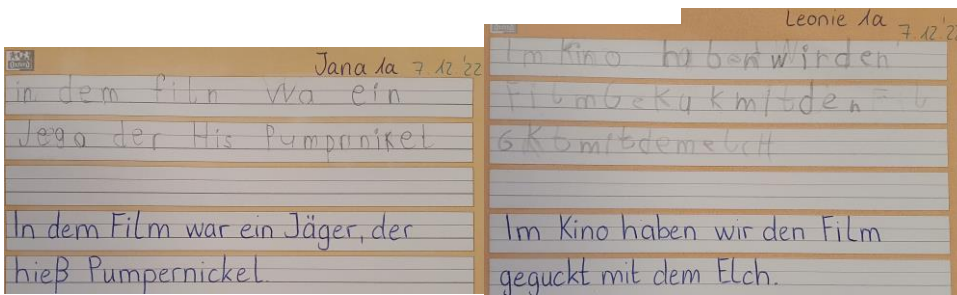 Jana 1a 7.12.'22
in dem filn wa ein
Jega der His Pumprnikel
In dem Film war ein Jäger, der
hieß Pumpernickel.
Leonie 1a 7.12.'2
Im Kino haben Wirden
FilmGekukmitden
mitdemelcH
Im Kino haben wir den Film
geguckt mit dem Elch.